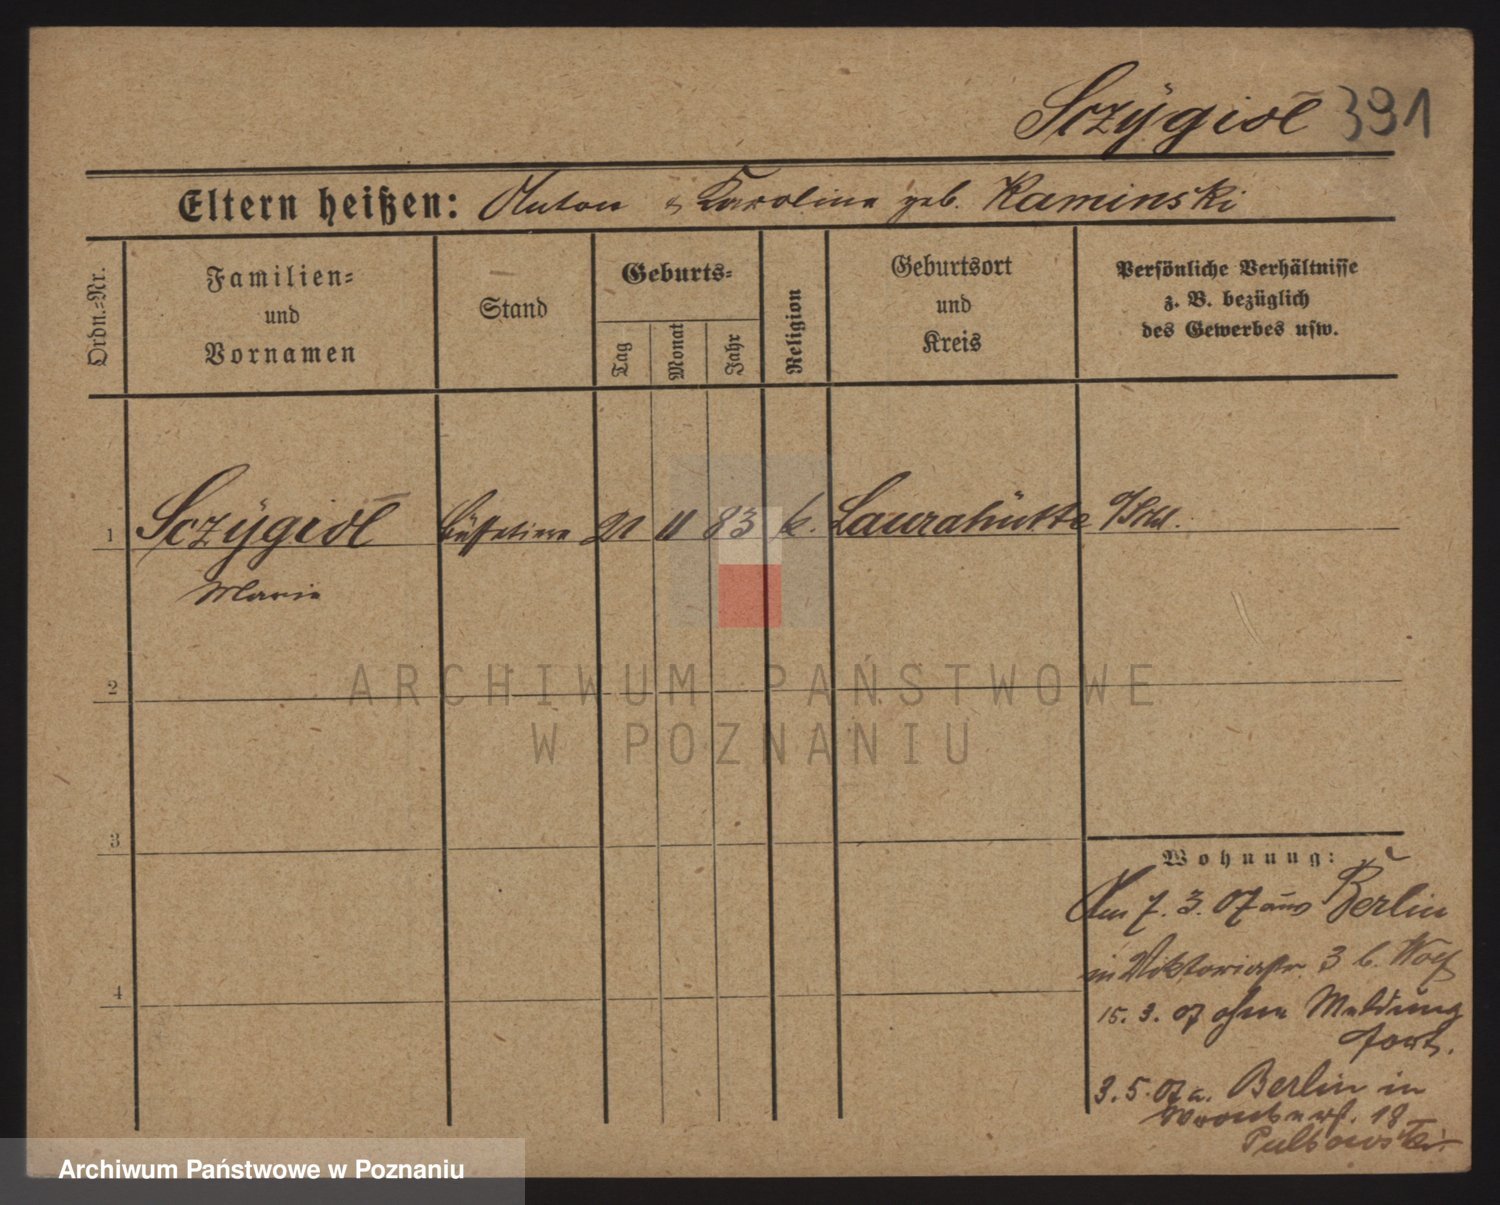 Sczÿgiol 391
Eltern heißen: Anton & Karoline geb. Kaminski
Ordn.-Nr.
Familien-
und
Vornamen
Stand
Geburts-
Tag
Monat
Jahr
Religion
Geburtsort
und
Kreis
Persönliche Verhältnisse
z. B. bezüglich
des Gewerbes usw.
1 Sczÿgiol Büffetiere 21 11 83 k. Laurahütte O/Schl.
Marie
2
ARCHIWUM PAŃSTWOWE
W POZNANIU
3
Wohnung:
Am 7. 3. 07 aus Berlin
in Viktoriastr. 3 b. Wolf
4
15. 3. 07 ohne Meldung
fort.
3. 5. 07 a. Berlin in
18
Archiwum Państwowe w Poznaniu